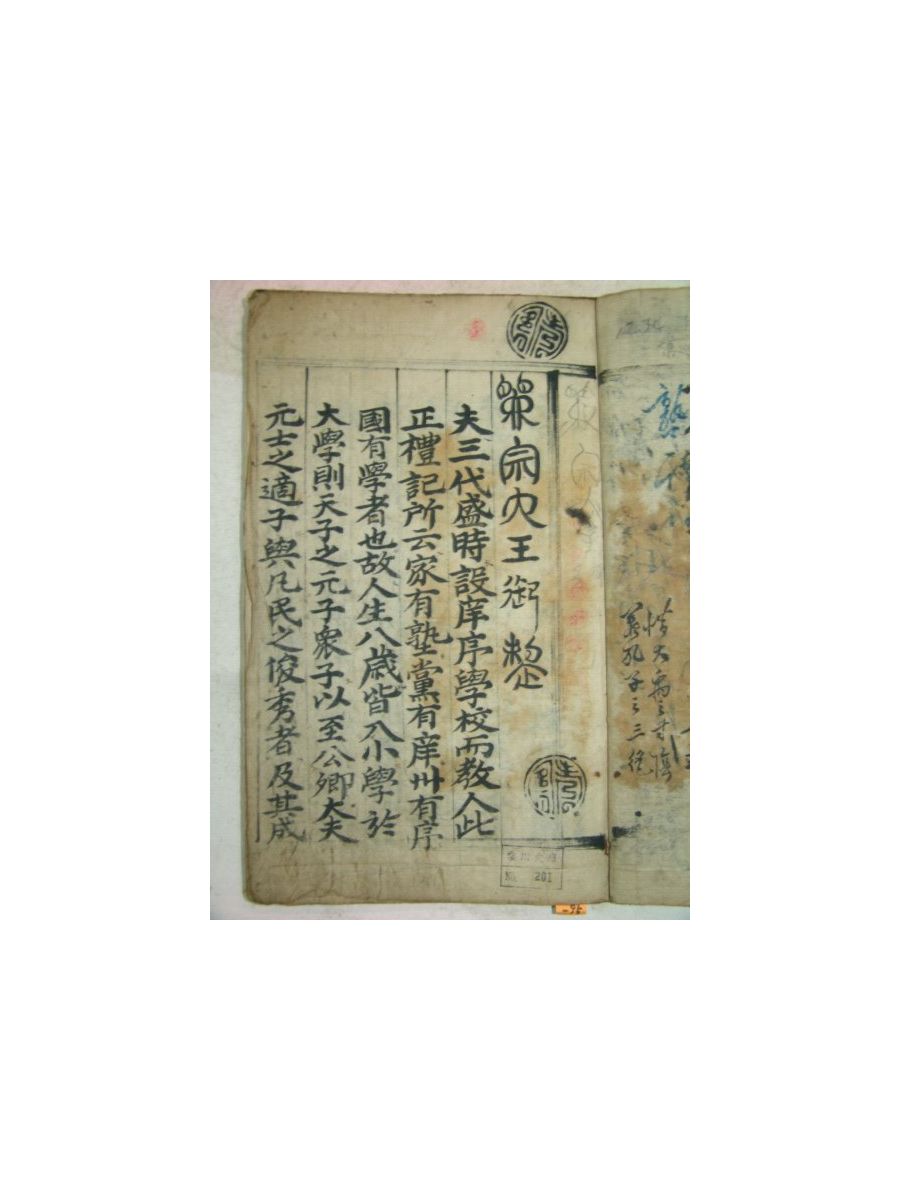 惜大禹之寸陰
孔子之三絕
英宗大王御製
夫三代盛時設庠序學校而教人此
正禮記所云家有塾黨有庠州有序
國有學者也故人生八歲皆入小學於
大學則天子之元子衆子以至公卿大夫
元士之適子與凡民之俊秀者及其成
№ 201